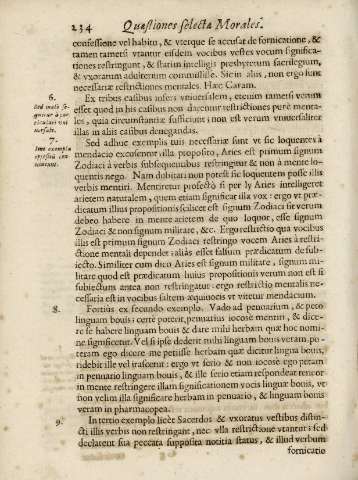 234 Quæstiones selectæ Morales.
confessione vel habito, & vterque se accusat de fornicatione, &
tamen tametsi vtantur eisdem vocibus vestes vocum significa-
tiones restringunt, & statim intelligis presbyterum sacrilegum,
& vxoratum adulterium commisisse. Sic in aliis, non ergo sunt
necessariæ restrictiones mentales. Hæc Caram.
6.
Sed malè se-
quitur à par-
ticulari vni
uersale.
Ex tribus casibus infers vniuersalem, etenim tametsi verum
esset quod in his casibus non dacentur restrictiones purè menta-
les, quia circunstantiæ sufficiunt; non est verum vniuersaliter
illas in aliis casibus denegandas.
7.
Imo exempla
apposita con
uincunt.
Sed adhuc exemplis tuis necessariæ sunt vt sic loquentes à
mendacio excusentur illa proposito, Aries est primum signum
Zodiaci à verbis subsequentibus restringitur & non à mente lo-
quentis nego. Nam dobitari non potest sic loquentem posse illis
verbis mentiri. Mentiretur profectò si per ly Aries intelligeret
arietem naturalem, quem etiam significat illa vox: ergo vt præ-
dicatum illius propositionis scilicet est signum Zodiaci sit verum
debeo habere in mente arietem de quo loquor, esse signum
Zodiaci & non signum militare, &c. Ergo restrictio qua vocibus
illis est primum signum Zodiaci restringo vocem Aries à restri-
ctione mentali dependet: aliàs esset falsum prædicatum de sub-
iecto. Similiter cum dico Aries est signum militare, signum mi-
litare quod est prædicatum huius propositionis verum non est si
subiectum antea non restringatur: ergo restrictio mentalis ne-
cessaria est in vocibus saltem æquiuocis vt vitetur mendacium.
8. Fortius ex secundo exemplo. Vado ad penuarium, & peto
linguam bouis: certè poterit penuarius iocosè mentiri, & dice-
re se habere linguam bouis & dare mihi herbam quæ hoc nomi-
ne significetur. Vel si ipse dederit mihi linguam bouis veram po-
teram ego dicere me petiisse herbam quæ dicitur lingua bouis,
ridebit ille vel irascetur: ergo vt serio & non iocosè ego petam
in penuario linguam bouis, & ille serio etiam respondeat tenetur
in mente restringere illam significationem vocis linguæ bouis, vt
non velim illa significare herbam in penuario, & linguam bouis
veram in pharmacopea.
9. In tertio exemplo licèt Sacerdos & vxoratus vestibus distin-
cti illis verbis non restringant, nec vlla restrictione vtantur: sed
declatent sua peccata supposita notitia status, & illud verbum
fornicatio